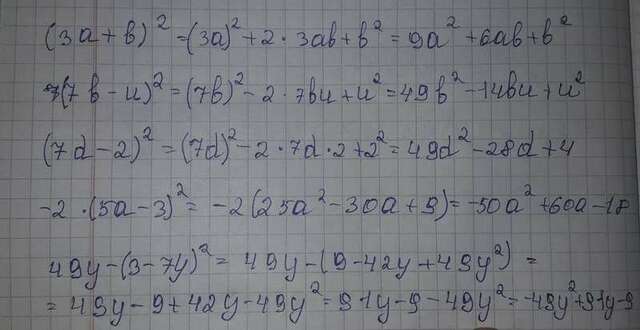 (3a+b)² = (3a)² + 2 · 3ab + b² = 9a² + 6ab + b²
(7b − u)² = (7b)² − 2 · 7bu + u² = 49b² − 14bu + u²
(7d − 2)² = (7d)² − 2 · 7d · 2 + 2² = 49d² − 28d + 4
−2 · (5a − 3)² = −2(25a² − 30a + 9) = −50a² + 60a − 18
49y − (3 − 7y)² = 49y − (9 − 42y + 49y²) =
= 49y − 9 + 42y − 49y² = 91y − 9 − 49y² = −49y² + 91y − 9